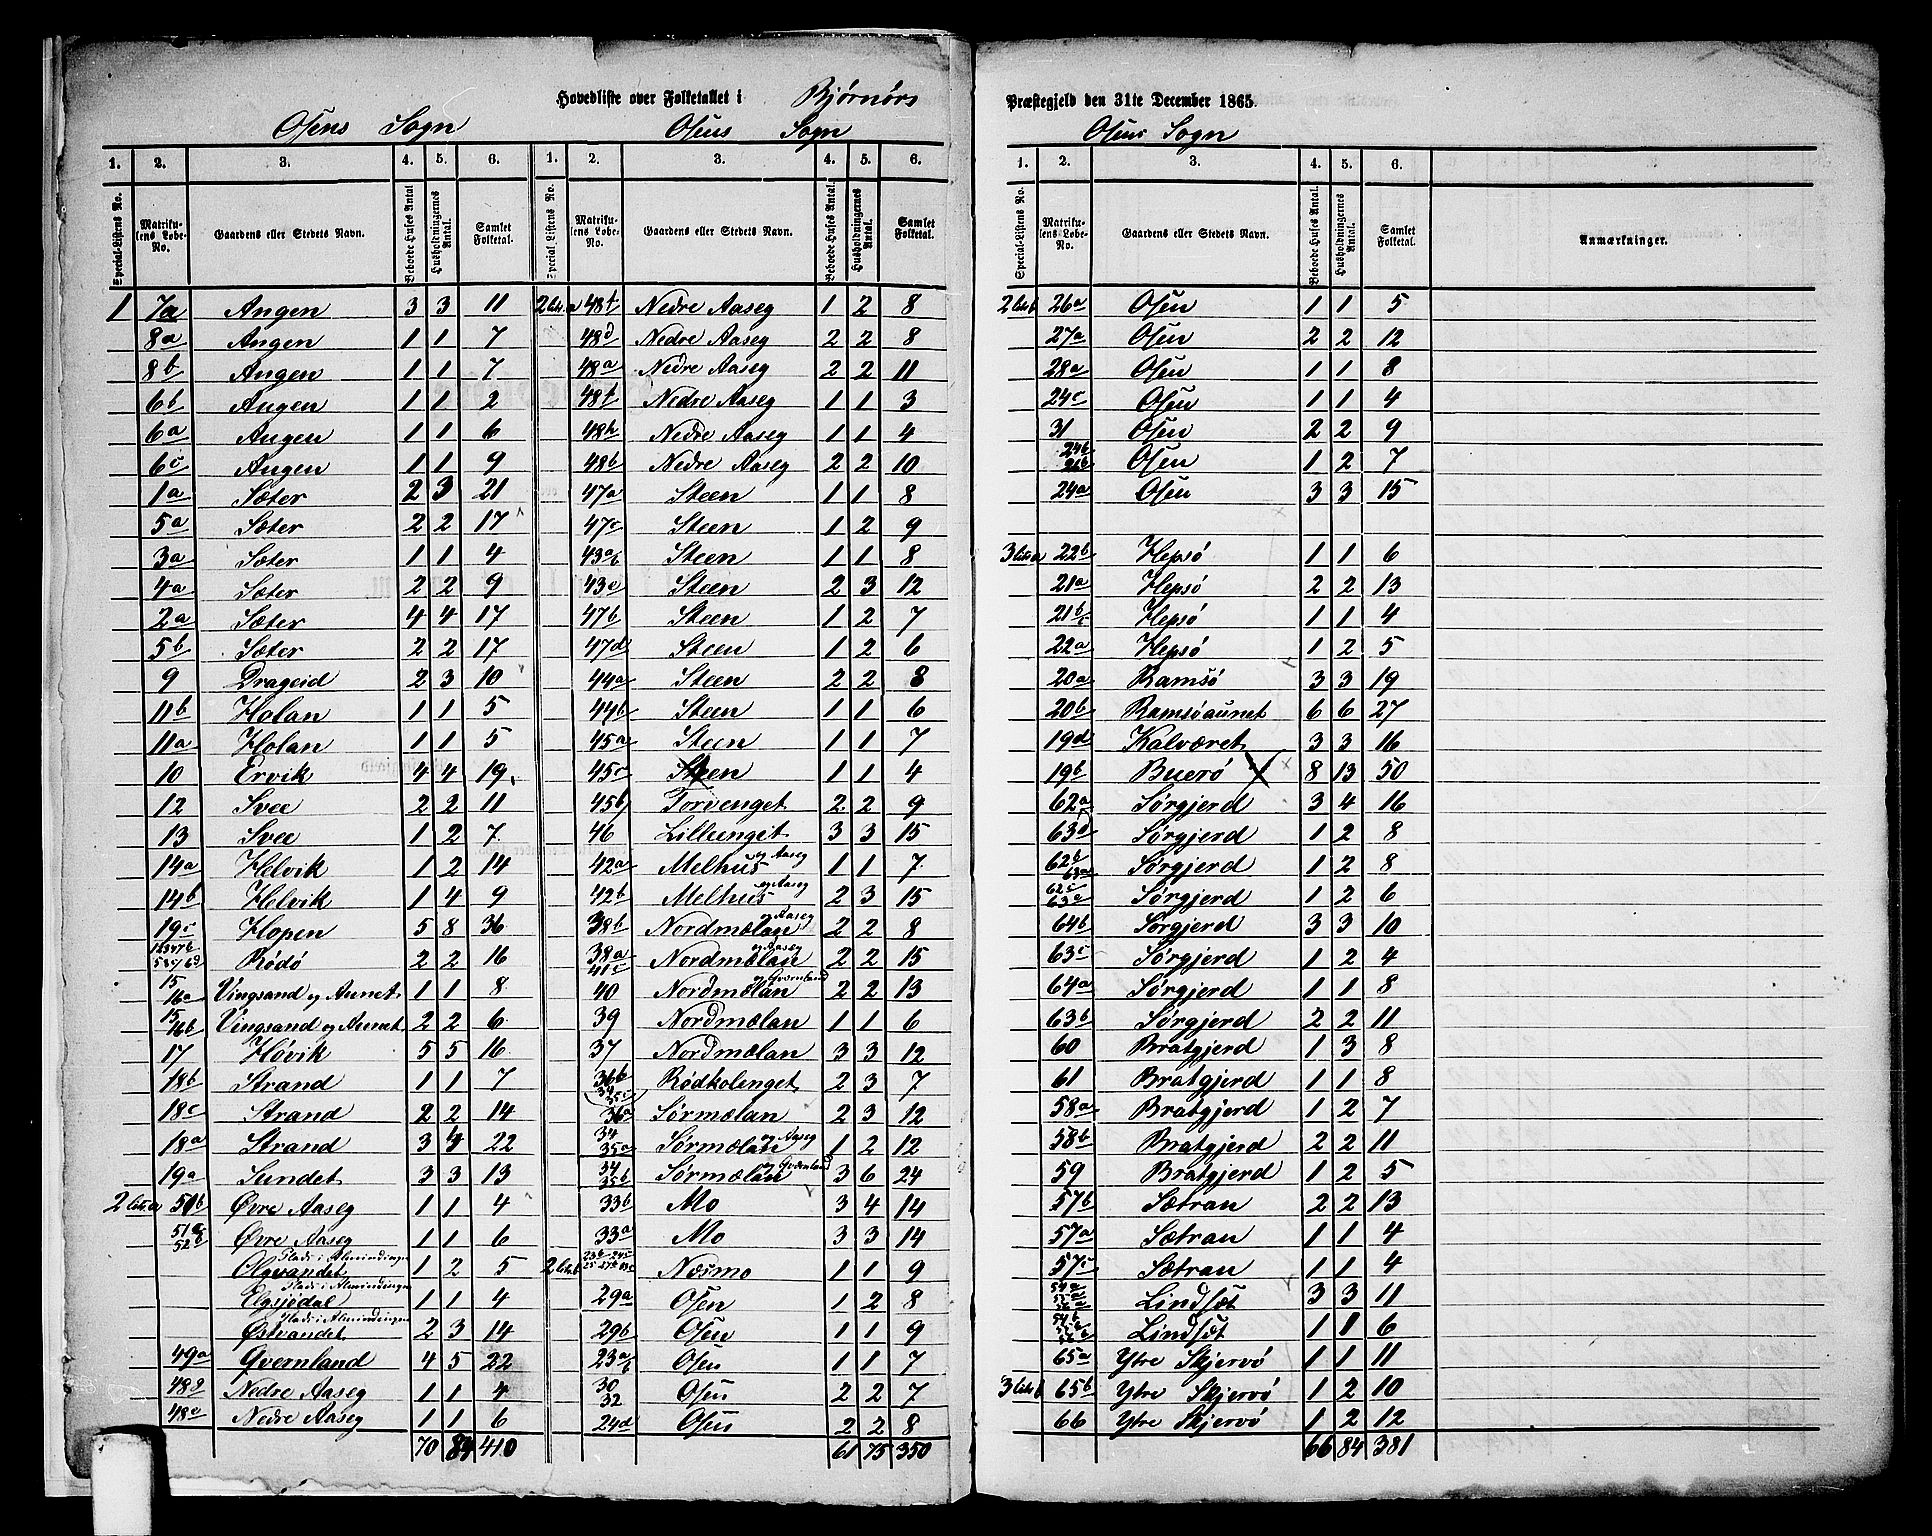 Hovedliste over Folketallet i Bjørnørs
Osens Sogn
1. 2. 3. 4. 5. 6.
Special-Listens No. Matrikulens Løbe-No. Gaardens eller Stedets Navn. Beboede Huses Antal Husholdningernes Antal. Samlet Folketal.
1 7a Angen 3 3 11
8a Angen 1 1 7
8b Angen 1 1 7
6b Angen 1 1 2
6a Angen 1 1 6
6c Angen 1 1 9
1a Sæter 2 3 21
5a Sæter 2 2 17
3a Sæter 1 1 4
4a Sæter 2 2 9
2a Sæter 4 4 17
5b Sæter 2 2 17
9 Drageid 2 3 10
11b Holan 1 1 5
11a Holan 1 1 5
10 Ervik 4 4 19
12 Svee 2 2 11
13 Svee 1 2 7
14a Helvik 1 2 14
14b Helvik 1 4 9
19c Hopen 5 8 36
Rödö 2 2 16
15 16a Vingsand og Aunet 1 1 8
15 16b Vingsand og Aunet 2 2 6
17 Høvik 5 5 16
18b Strand 1 1 7
18c Strand 2 2 14
18a Strand 3 4 22
19a Sundet 3 3 13
2 litr. a 51b Øvre Aaseg 1 1 4
Øvre Aaseg 1 1 6
Olgvandet Plads i Almindingen 1 2 5
Elgsjødal Plads i Almindingen 1 1 4
Østvandet Plads i Almindingen 2 3 14
49a Qvernland 4 5 22
48g Nedre Aaseg 1 1 4
48e Nedre Aaseg 1 1 6
70 84 410
Osens Sogn
1. 2. 3. 4. 5. 6.
Special Listens No. Matrikulens Løbe-No. Gaardens eller Stedets Navn. Beboede Huses Antal. Husholdningernes Antal. Samlet Folketal.
2 litr. a 48f Nedre Aaseg 1 2 8
48d Nedre Aaseg 2 2 8
48a Nedre Aaseg 2 2 11
48f Nedre Aaseg 1 1 3
48h Nedre Aaseg 1 1 4
48b Nedre Aaseg 2 2 10
47a Steen 1 1 8
47c Steen 1 2 9
43a b Steen 1 1 8
43c Steen 2 3 12
47b Steen 1 2 7
47d Steen 1 2 6
44a Steen 2 2 8
44b Steen 1 1 6
45a Steen 1 1 7
45c Steen 1 1 4
45b Torvenget 2 2 9
46 Lillenget 3 3 15
42a Melhus og Aaseg 1 1 7
42b Melhus og Aaseg 2 3 15
38b Nordmælan og Aaseg 2 2 8
38a 41c Nordmælan og Aaseg 2 2 15
40 Nordmælan og Qvernland 2 2 13
39 Nordmælan 1 1 6
37 Nordmælan 3 3 12
36b Rödkolenget 2 3 7
36a Sørmælan 2 3 12
34 35a Sørmælan og Aaseg 1 2 12
34 35b Sørmælan og Qvernland 3 6 24
33b Mo 3 4 14
33a Mo 3 3 14
2 litr. b Næsmo 1 1 9
29a Osen 1 2 8
29b Osen 1 1 9
23a b Osen 1 1 7
30 32 Osen 2 2 7
24d Osen 2 2 8
61 75 350
Præstegjeld den 31te December 1865.
Osens Sogn
1. 2. 3. 4. 5. 6.
Special-Listens No. Matrikulens Løbe-No. Gaardens eller Stedets Navn. Beboede Huses Antal. Husholdningernes Antal. Samlet Folketal. Anmærkninger.
2 litr. b 26a Osen 1 1 5
27a Osen 2 2 12
28a Osen 1 1 8
24c Osen 1 1 4
31 Osen 2 2 9
24b 26b Osen 1 2 7
24a Osen 3 3 15
3 litr. a 22b Hepsö 1 1 6
21a Hepsö 2 2 13
21b c Hepsö 1 1 4
22a Hepsö 1 2 5
20a Ramsö 3 3 19
20b Ramsöaunet 6 6 27
19d Kalværet 3 3 16
19b Buerö 8 13 50
62a Sørgjerd 3 4 16
63d Sørgjerd 1 2 8
62b 63a Sørgjerd 1 2 8
62c 63a Sørgjerd 1 2 6
64b Sørgjerd 3 3 10
63c Sørgjerd 1 2 4
64a Sørgjerd 1 1 8
63b Sørgjerd 2 2 11
60 Bratgjerd 1 3 8
61 Bratgjerd 1 1 8
58a Bratgjerd 1 2 7
58b Bratgjerd 2 2 11
59 Bratgjerd 1 2 5
57b Sætran 2 2 13
57a Sætran 1 1 4
57c Sætran 1 1 4
Lindsæt 3 3 11
Lindsæt 1 1 6
65a Ytre Skjervö 1 1 11
3 litr. b 65b Ytre Skjervö 1 2 10
66 Ytre Skjervö 1 2 12
66 84 381